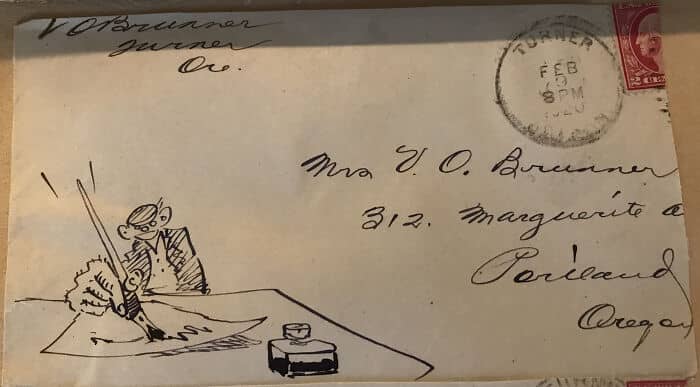 V O Brunner
Turner
Ore.
TURNER
FEB
8 PM
1920
OREGON
2
Mrs V. O. Brunner
312. Marguerite a
Portland
Oregon